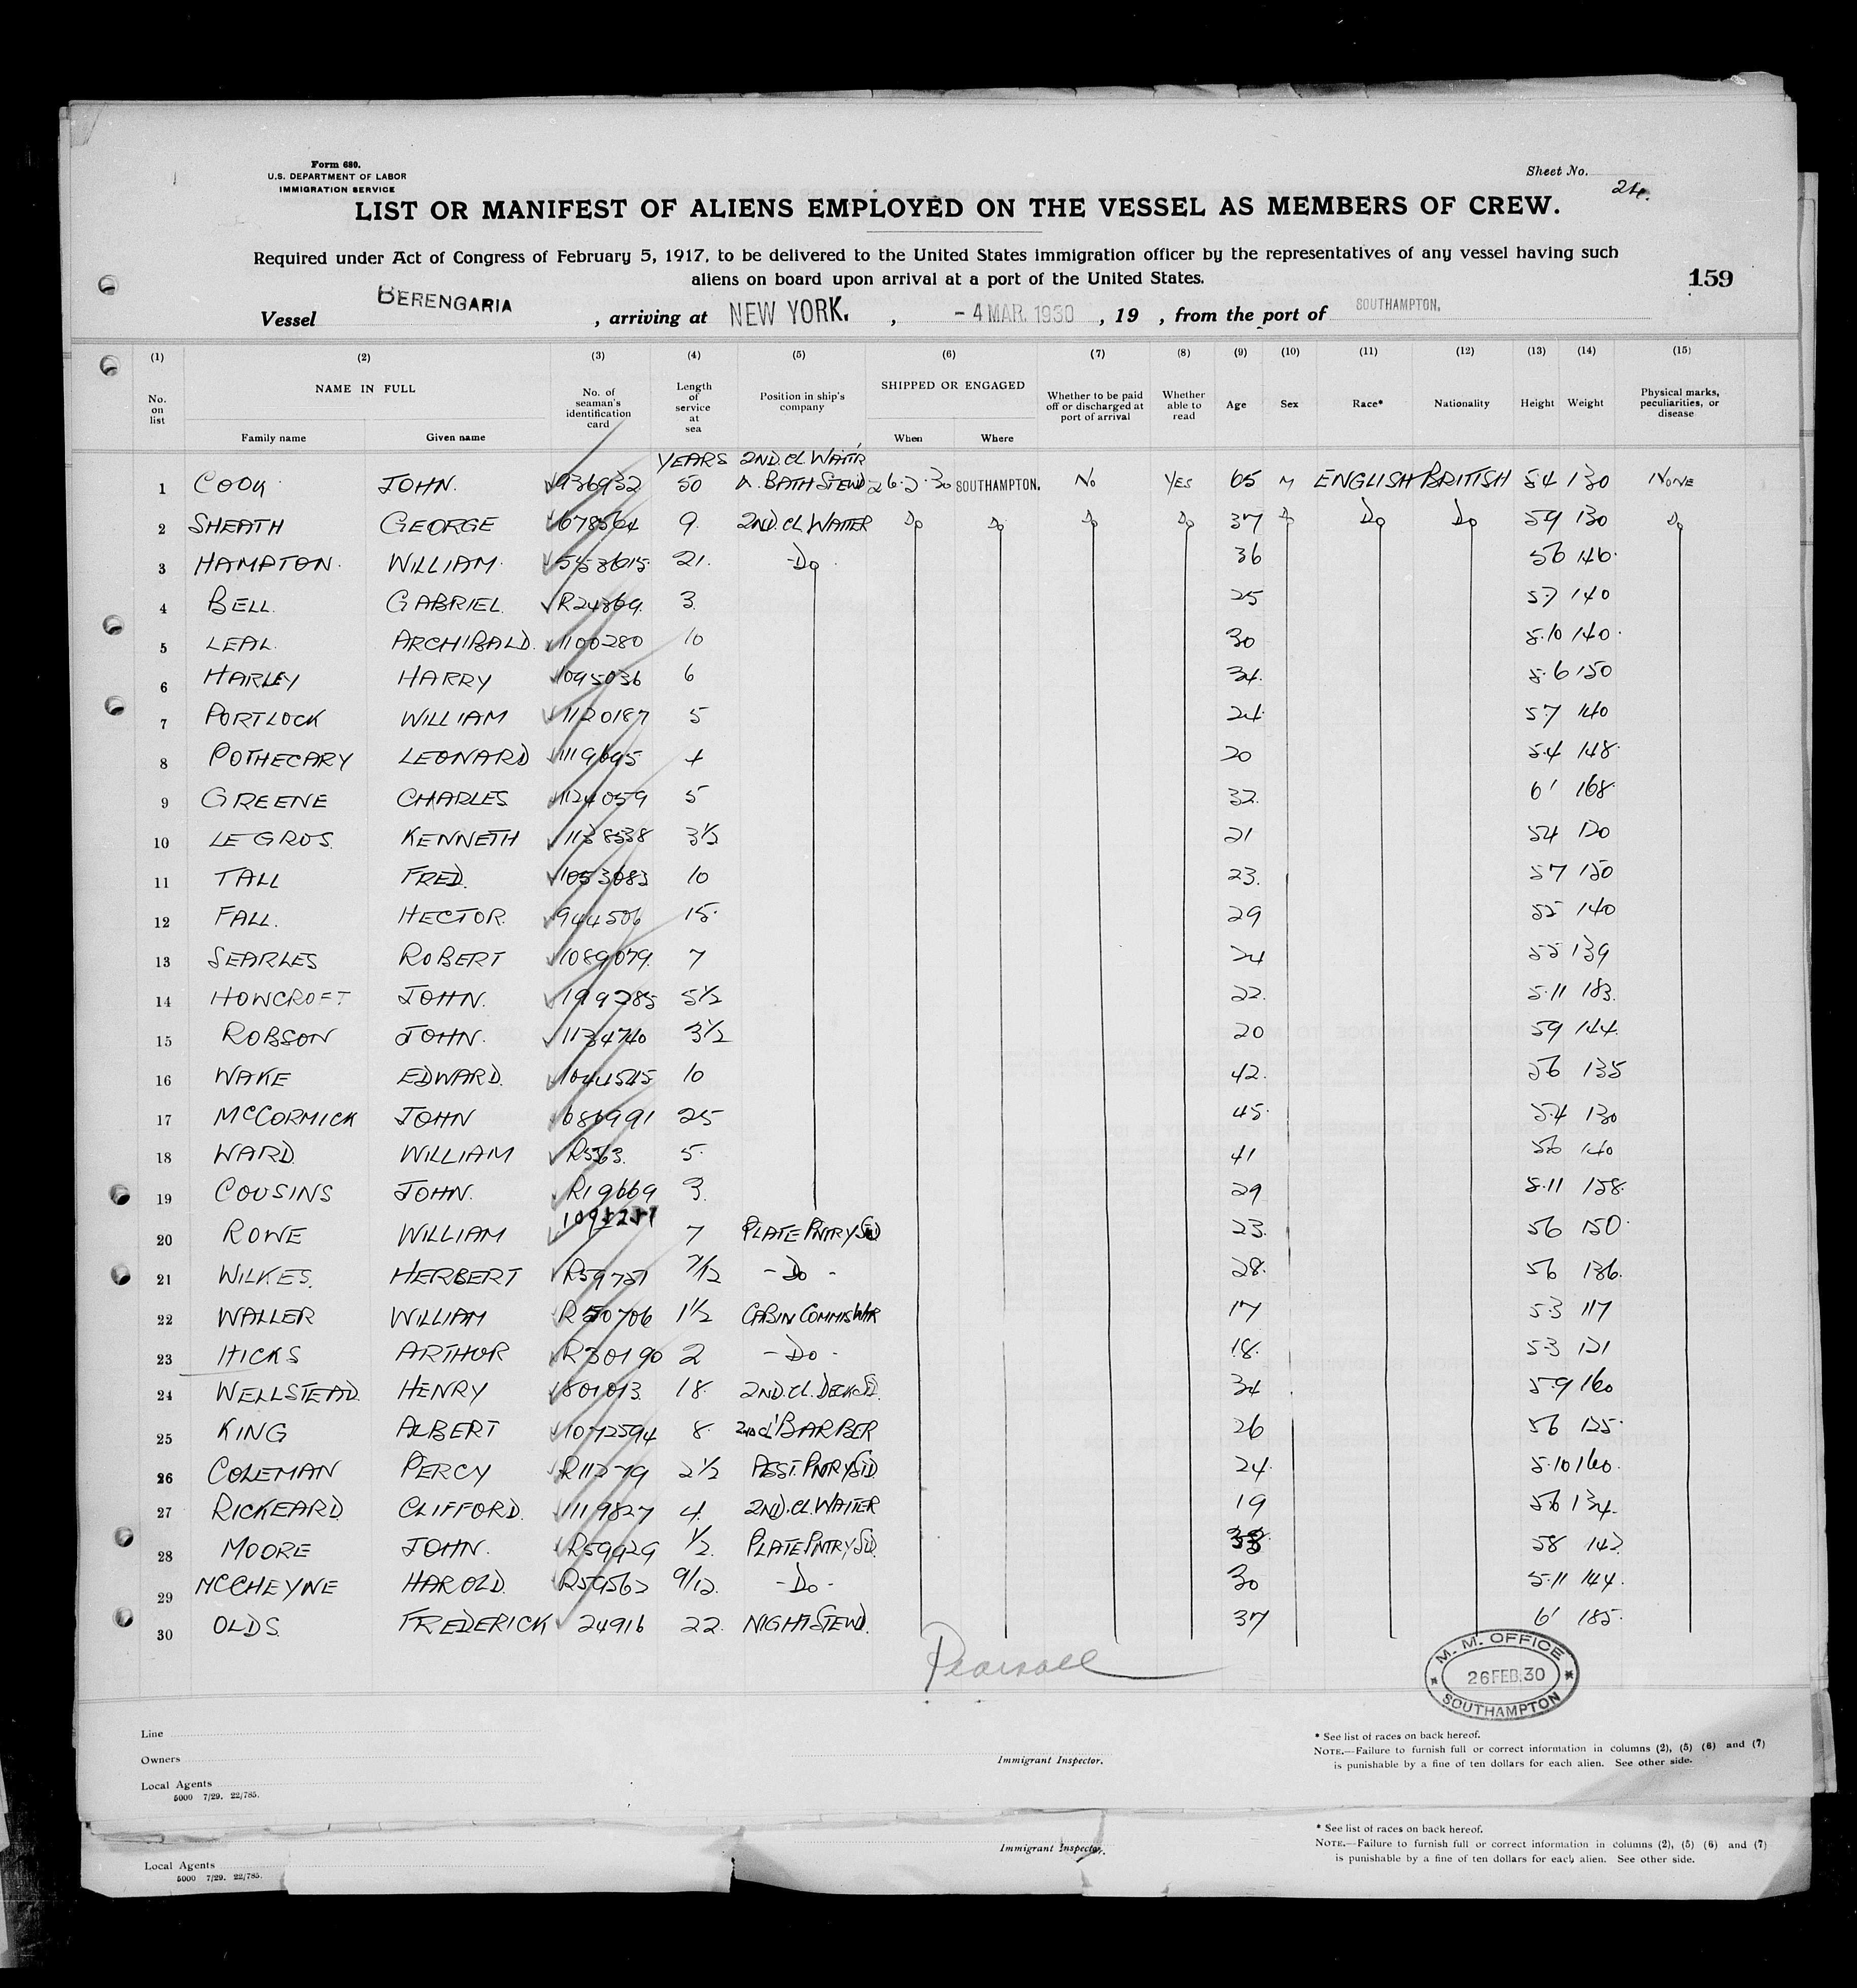 Form 680.
U.S. DEPARTMENT OF LABOR
IMMIGRATION SERVICE
Sheet No. 24.
LIST OR MANIFEST OF ALIENS EMPLOYED ON THE VESSEL AS MEMBERS OF CREW.
Required under Act of Congress of February 5, 1917, to be delivered to the United States immigration officer by the representatives of any vessel having such
aliens on board upon arrival at a port of the United States.
159
Vessel BERENGARIA , arriving at NEW YORK. , - 4 MAR. 1930 , 19 , from the port of SOUTHAMPTON.
(1) (2) (3) (4) (5) (6) (7) (8) (9) (10) (11) (12) (13) (14) (15)
No. on list NAME IN FULL Family name Given name No. of seaman's identification card Length of service at sea Position in ship's company SHIPPED OR ENGAGED When Where Whether to be paid off or discharged at port of arrival Whether able to read Age Sex Race* Nationality Height Weight Physical marks, peculiarities, or disease
YEARS 2ND. CL WAITR
1 COOK JOHN. 936932 50 BATH STEWD 26.2.30 SOUTHAMPTON. No YES 65 M ENGLISH BRITISH 54 130 NONE
2 SHEATH GEORGE 678564 9. 2ND. CL WAITER Do Do Do Do 37 Do Do Do 59 130 Do
3 HAMPTON. WILLIAM. 553615 21. -Do 36 56 140.
4 BELL. GABRIEL. R24869 3. 25 5.7 140
5 LEAL. ARCHIBALD. 1100280 10 30 5.10 140.
6 HARLEY HARRY 1095036 6 34. 5.6 150
7 PORTLOCK WILLIAM 1120187 5 24. 57 140
8 POTHECARY LEONARD 1119695 4 20 5.4 148.
9 GREENE CHARLES 1124059 5 32. 6' 168.
10 LE GROS. KENNETH 1138538 3½ 21 54 120
11 TALL FRED. 1053083 10 23. 57 150
12 FALL. HECTOR. 944506 15. 29 55 140
13 SEARLES ROBERT 1089079. 7 24 55 139
14 HOWCROFT JOHN. 199285 5½ 22. 5.11 183.
15 ROBSON JOHN. 1134740 3½ 20 59 144.
16 WAKE EDWARD. 1044545 10 42. 56 135
17 McCORMICK JOHN 686991 25 45. 5.4 130
18 WARD. WILLIAM R563. 5. 41 56 140
19 COUSINS JOHN. R19669 3. 29 5.11 158.
20 ROWE WILLIAM 7 PLATE PNTRY SD 23. 56 150.
21 WILKES. HERBERT R59727 7/12 - Do - 28. 56 136.
22 WALLER WILLIAM R50706 1½ CABIN COMMIS WTR 17 5.3 117
23 HICKS ARTHUR R30190 2 - Do - 18. 5.3 121
24 WELLSTEAD. HENRY 801013. 18. 2ND. CL. DECK SD. 34 5.9 160
25 KING ALBERT 1072594 8. 2ND CL BARBER 26 56 125.
26 COLEMAN PERCY R11279 2½ ASST. PNTRY STD 24. 5.10 160.
27 RICKEARD. CLIFFORD. 1119827 4. 2ND. CL WAITER 19 5.6 134.
28 MOORE JOHN. R59929 ½. PLATE PNTRY SD. 58 142
29 McCHEYNE HAROLD. R59562 9/12. - Do - 30 5.11 144.
30 OLDS. FREDERICK 24916 22. NIGHT STEWD. 37 6' 185.
Pearsall
M. M. OFFICE
26 FEB. 30
SOUTHAMPTON
Line
Owners
Local Agents
5000 7/29. 22/785.
Immigrant Inspector.
* See list of races on back hereof.
NOTE.—Failure to furnish full or correct information in columns (2), (5) (6) and (7)
is punishable by a fine of ten dollars for each alien. See other side.
Local Agents
5000 7/29. 22/785.
Immigrant Inspector.
* See list of races on back hereof.
NOTE.—Failure to furnish full or correct information in columns (2), (5) (6) and (7)
is punishable by a fine of ten dollars for each alien. See other side.